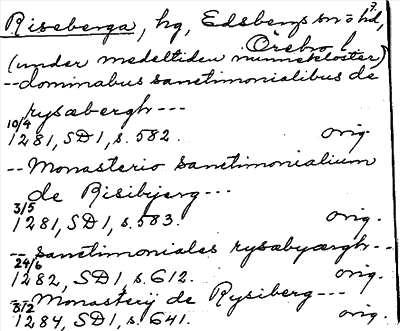 Riseberga, hg, Edsbergs sn o hd,
Örebro l.
(under medeltiden nunnekloster)
-- dominabus sanctimonialibus de
rysæbergh ---
10/4
1281, SD 1, s. 582. orig.
-- Monasterio Sanctimonialium
de Risibjerg ---
3/5
1281, SD 1, s. 583. orig.
-- Sanctimoniales rysæbyærgh --
24/6
1282, SD 1, s. 612. orig.
-- Monasterij de Rysiberg ---
3/2
1284, SD 1, s. 641. orig.